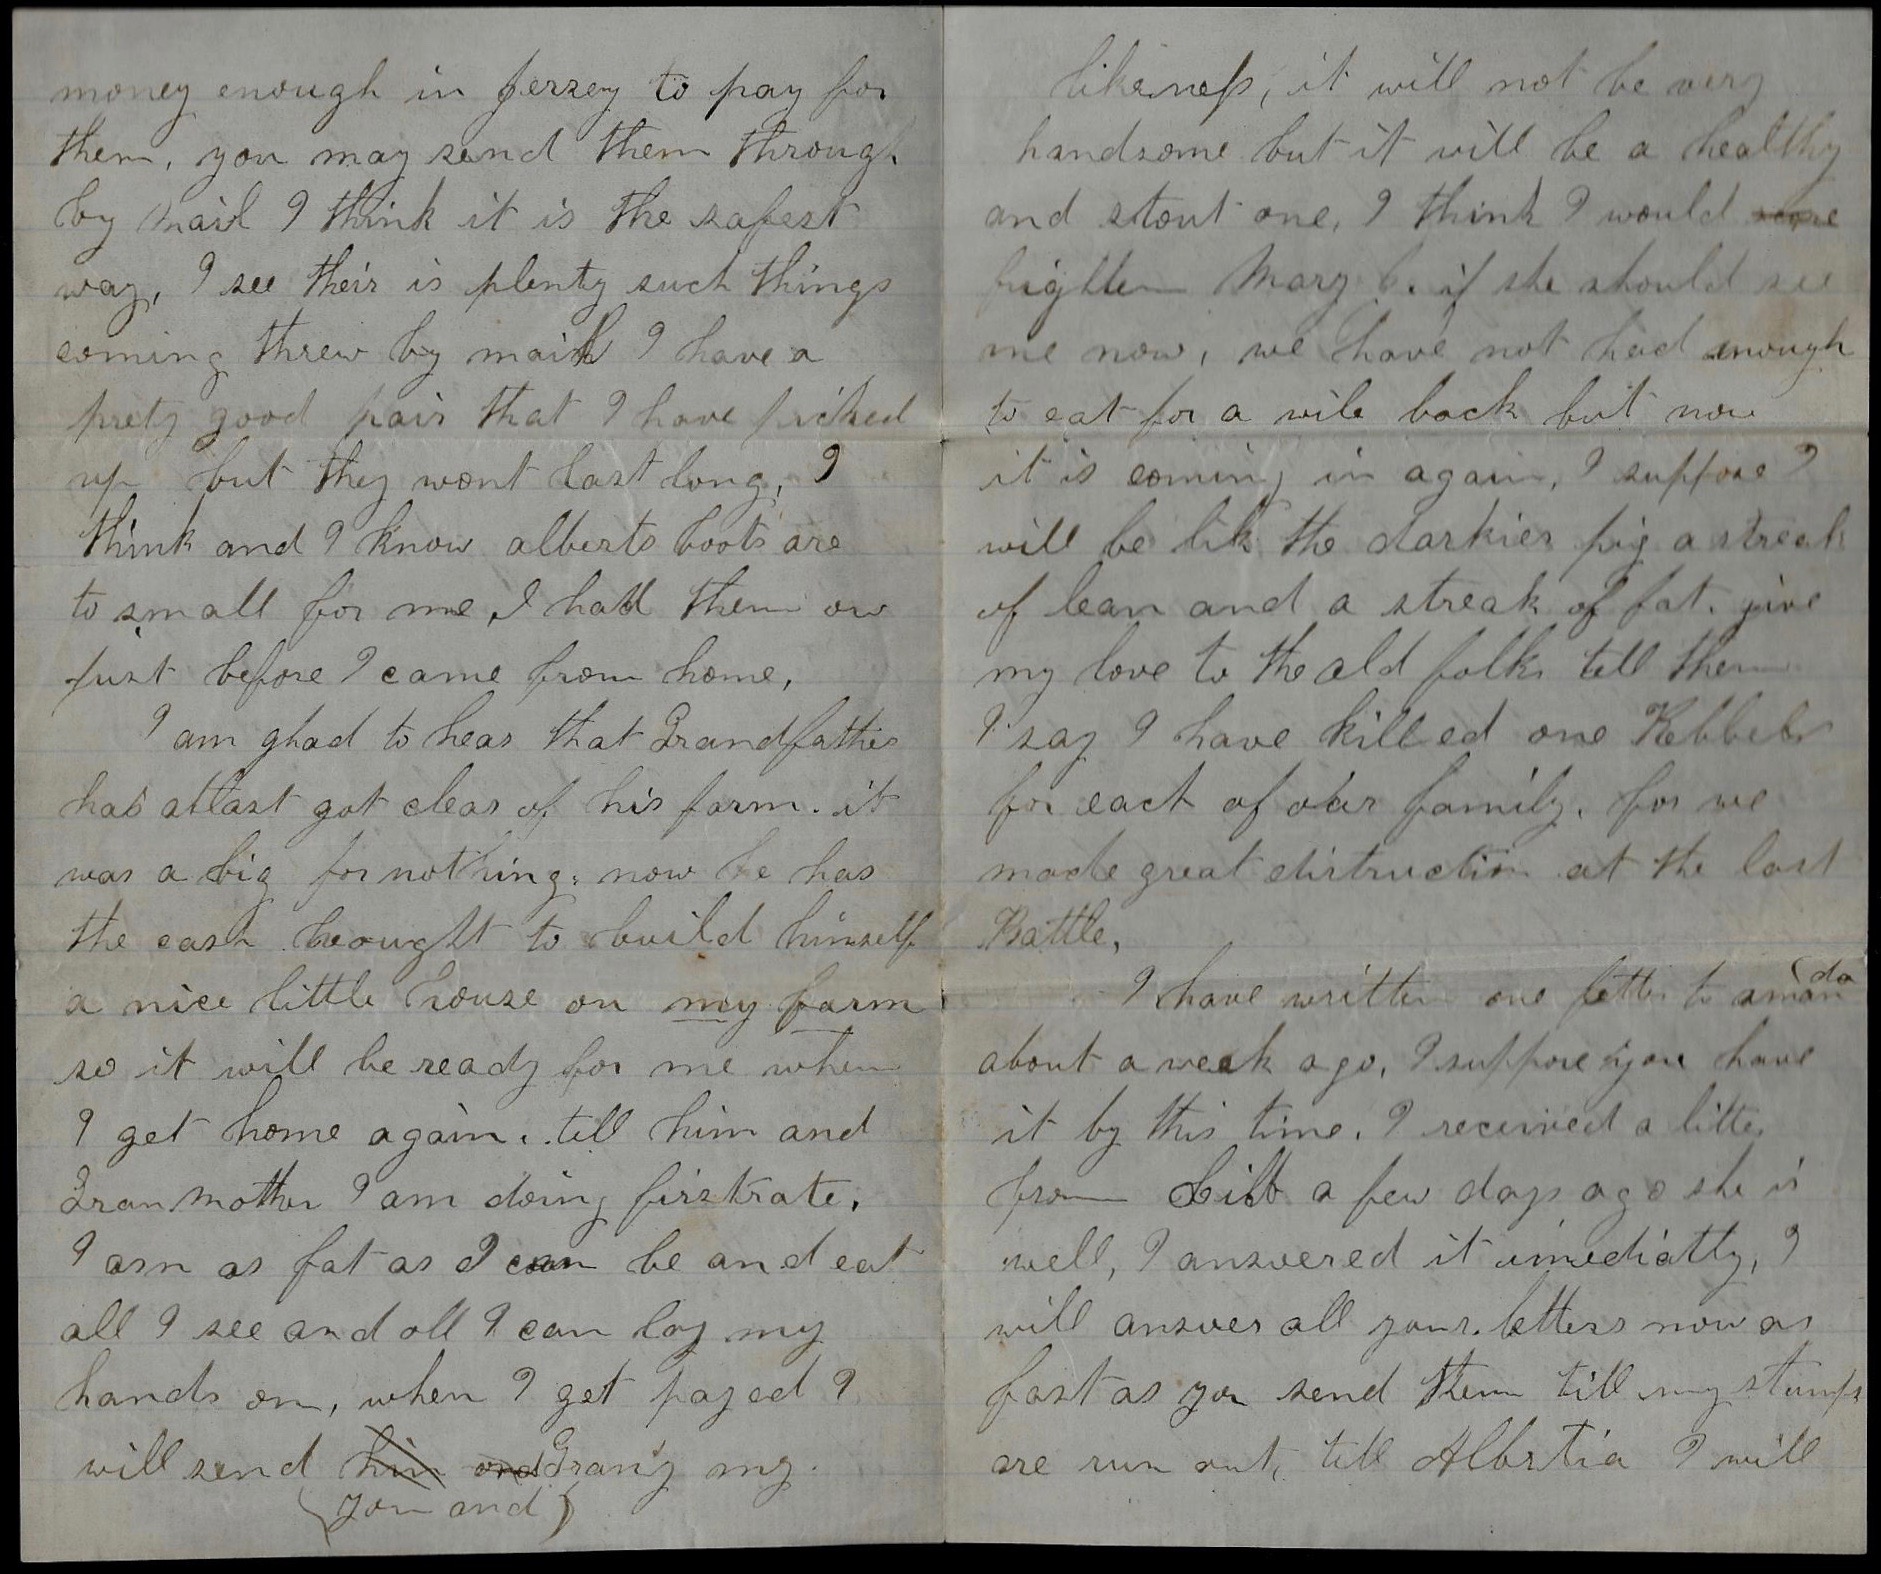 money enough in Jersey to pay for
them, you may send them through
by mail I think it is the safest
way, I see their is plenty such things
coming threw by mail I have a
prety good pair that I have picked
up but they wont last long, I
think and I know alberts boots are
to small for me, I had them on
just before I came from home,
I am glad to hear that Grandfather
has atlast got clear of his farm. it
was a big for nothing, now he has
the cash beought to build himself
a nice little house on my farm
so it will be ready for me when
I get home again. till him and
Granmother I am doing firstrate,
I am as fat as I can be and eat
all I see and all I can lay my
hands on, when I get payed I
will send him and Grany my
(you and)
likeness, it will not be very
handsome but it will be a healthy
and stout one, I think I would
frighten Mary if she should see
me now, we have not had enough
to eat for a wile back but now
it is coming in again, I suppose I
will be lik the darkies pig a streak
of lean and a streak of fat. give
my love to the old folks till them
I say I have killed one Rebbel
for each of our family, for we
made great distruction at the last
Battle,
I have written one letter to amanda
about a week ago, I suppose you have
it by this time. I received a litter
from a few days ago she is
well, I answered it imediatly, I
will answer all your letters now as
fast as you send them till my stamps
are run out, till Albertia I will